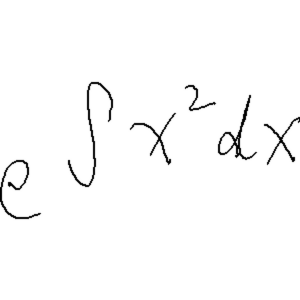 e ∫ x² dx